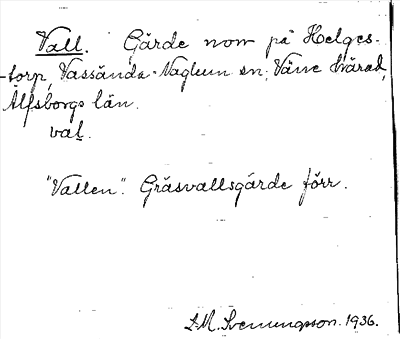 Vall. Gärde nom på Helges-
-torp, Vassända-Naglum sn, Väne härad,
Älfsborgs län.
val.
"Vallen". Gräsvallsgärde förr.
S.M. Svenungsson. 1936.